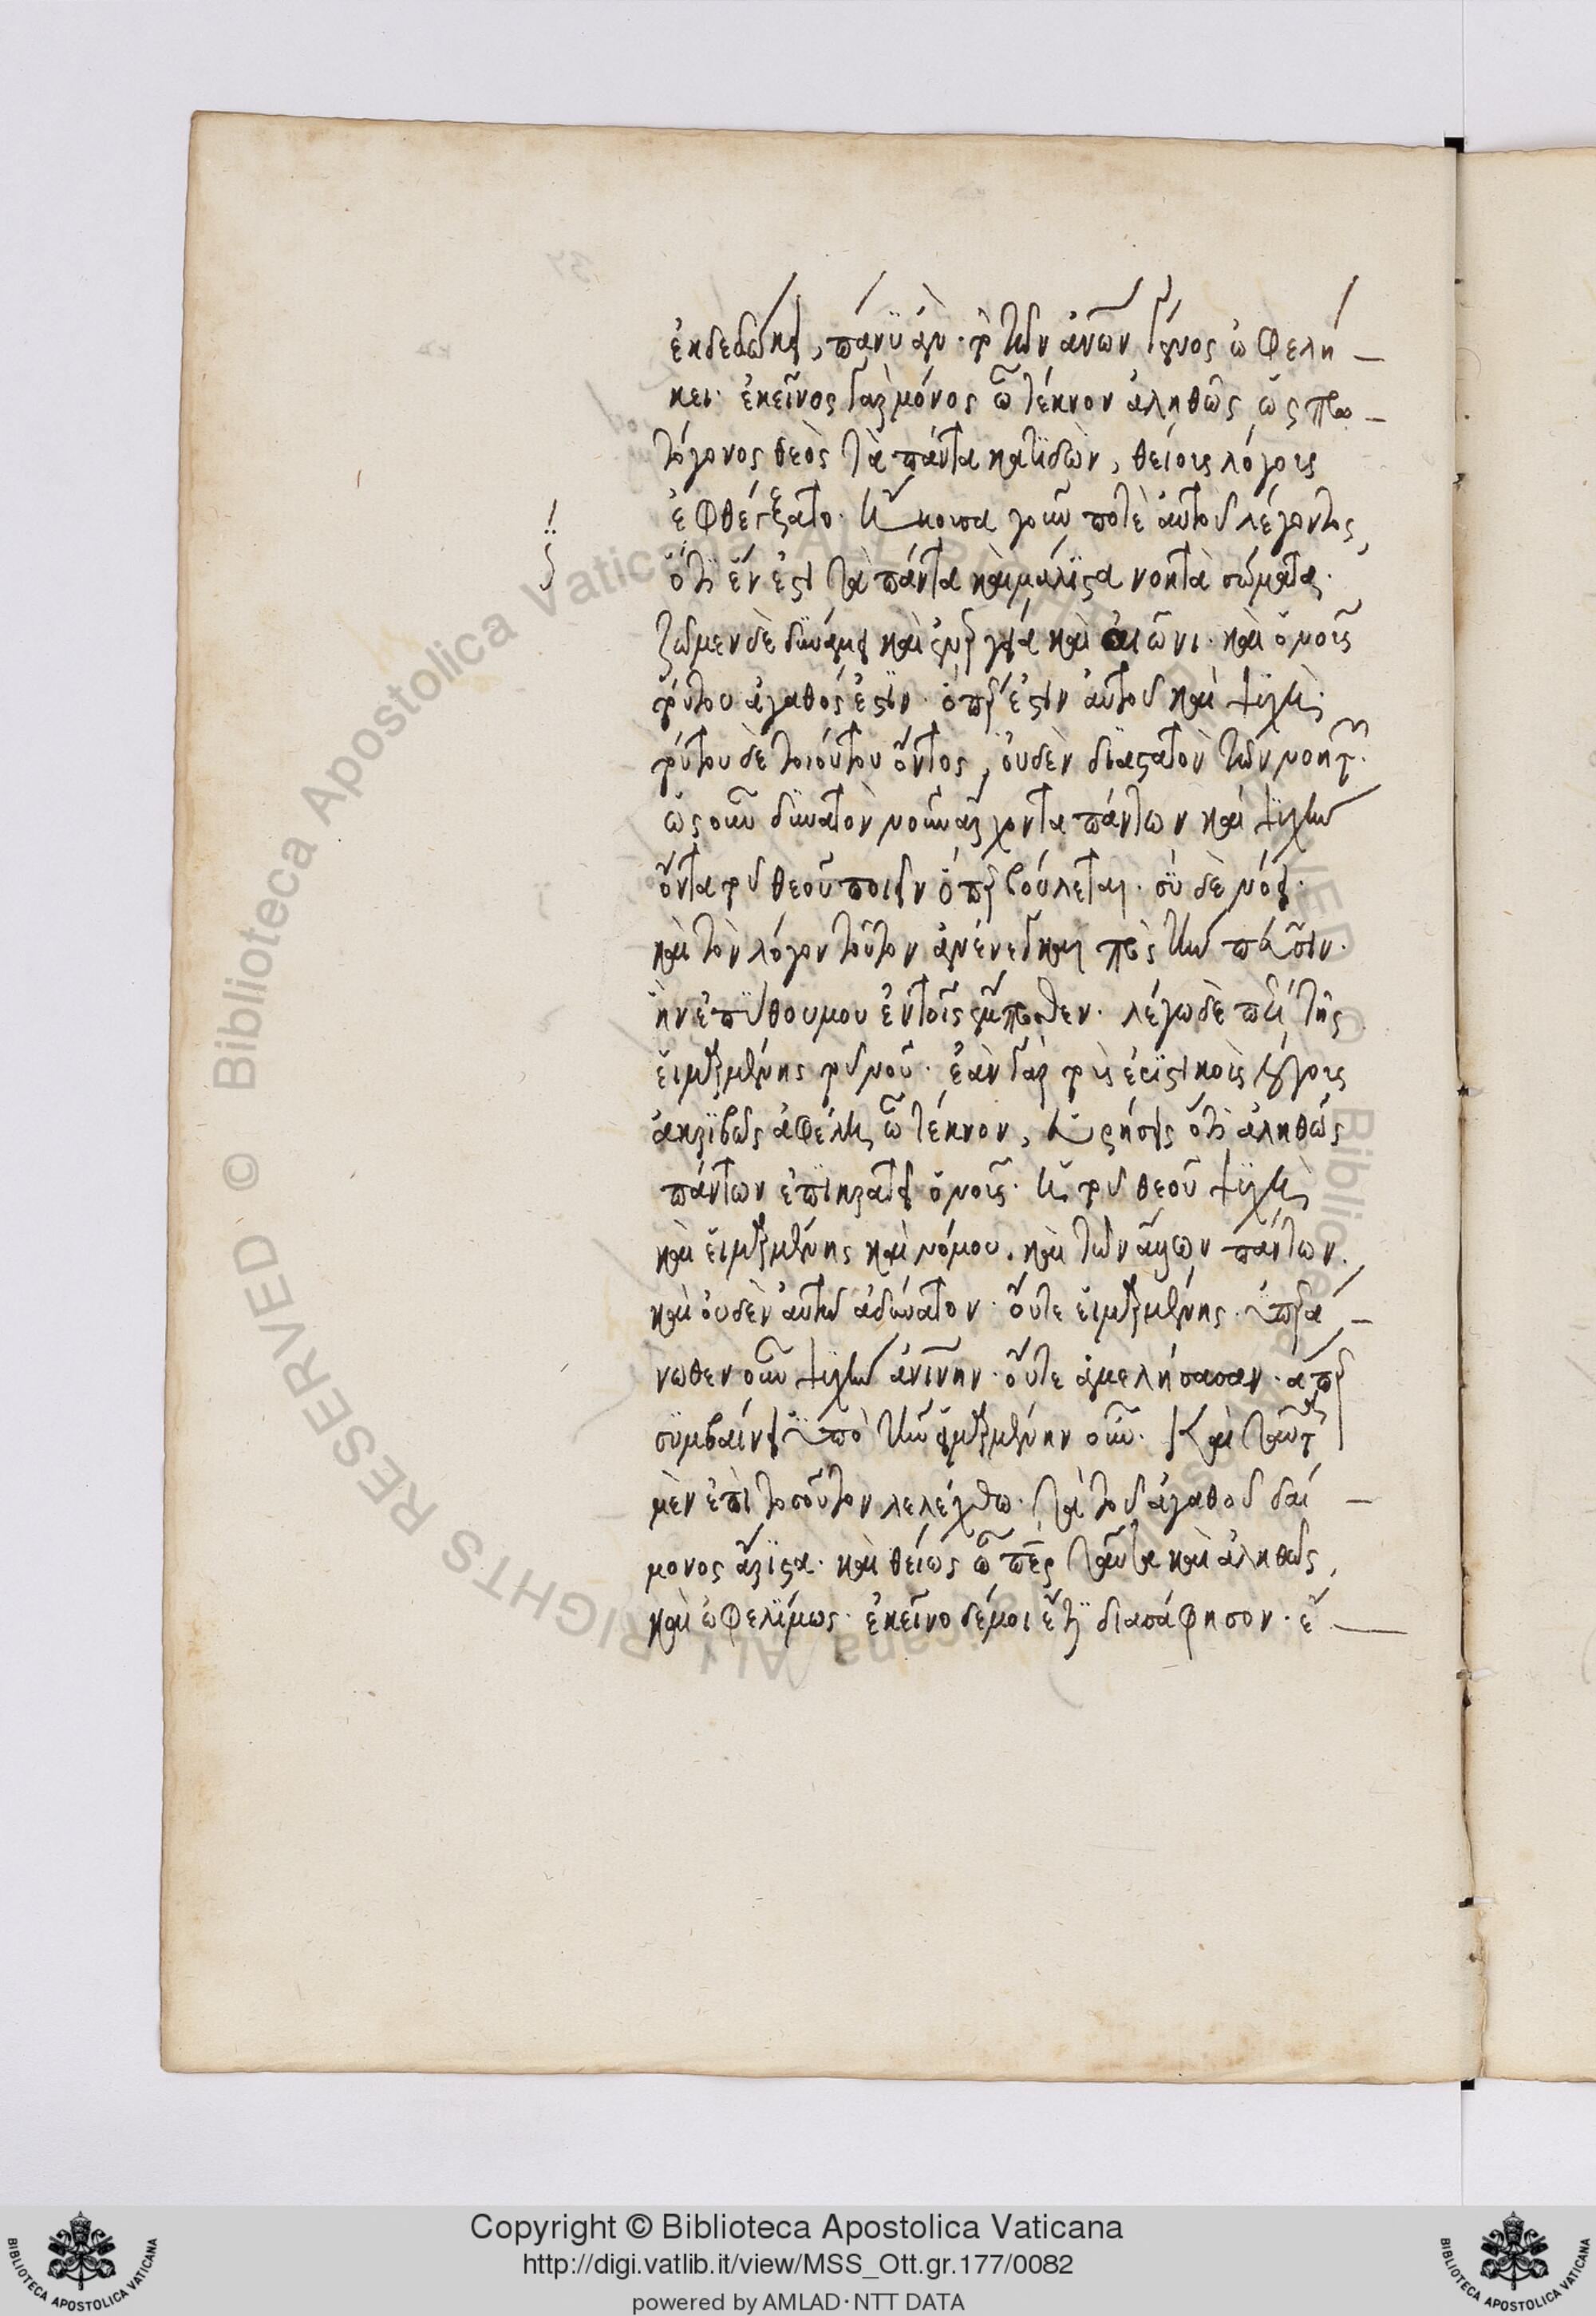 ἐκδεδώκει, πάνυ ἂν τὸ τῶν ἀνῶν γένος ὠφελή –
κει· ἐκεῖνος γὰρ μόνος ὦ τέκνον ἀληθῶς ὡς πρω –
τόγονος θεὸς τὰ πάντα κατιδὼν, θείους λόγους
ἐφθέγξατο· ἤκουσα γοῦν ποτὲ αὐτοῦ λέγοντος,
ὅτι ἕν ἐστι τὰ πάντα καὶ μάλιστα νοητὰ σώματα·
ζῶμεν δὲ δυνάμει καὶ ἐνεργείᾳ καὶ αἰῶνι· καὶ ὁ νοῦς
τούτου ἀγαθός ἐστιν· ὅπερ ἐστὶν αὐτοῦ καὶ ψυχή·
τούτου δὲ τοιούτου ὄντος, οὐδὲν διαστατὸν τῶν νοητῶν·
ὡς οὖν δυνατὸν νοῦν ἄρχοντα πάντων καὶ ψυχὴν
ὄντα τοῦ θεοῦ ποιεῖν ὅπερ βούλεται· σὺ δὲ νόει·
καὶ τὸν λόγον τοῦτον ἀνένεγκαι πρὸς τὴν πεῦσιν·
ἣν ἐπύθου μου ἐν τοῖς ἔμπροσθεν· λέγω δὲ περὶ τῆς
εἱμαρμένης τοῦ νοῦ· ἐὰν γὰρ τοὺς ἐριστικοὺς λόγους
ἀκριβῶς ἀφέλῃς ὦ τέκνον, εὑρήσεις ὅτι ἀληθῶς
πάντων ἐπικρατεῖ ὁ νοῦς· ἡ τοῦ θεοῦ ψυχὴ
καὶ εἱμαρμένης καὶ νόμου. καὶ τῶν ἄλλων πάντων.
καὶ οὐδὲν αὐτῷ ἀδύνατον· οὔτε εἱμαρμένης· ὑπερά –
νωθεν οὖν ψυχὴν ἀνίνην· οὔτε ἀμελήσασαν· ἅπερ
συμβαίνει ὑπὸ τὴν εἱμαρμένην οὖν· Καὶ ταῦτα
μὲν ἐπὶ τοσοῦτον λελέχθω· τὰ τοῦ ἀγαθοῦ δαί –
μονος ἄριστα· καὶ θείως ὦ πάτερ ταῦτα καὶ ἀληθῶς,
καὶ ὠφελίμως· ἐκεῖνο δέ μοι ἔτι διασάφησον· ἔ –
Copyright © Biblioteca Apostolica Vaticana
http://digi.vatlib.it/view/MSS_Ott.gr.177/0082
powered by AMLAD·NTT DATA